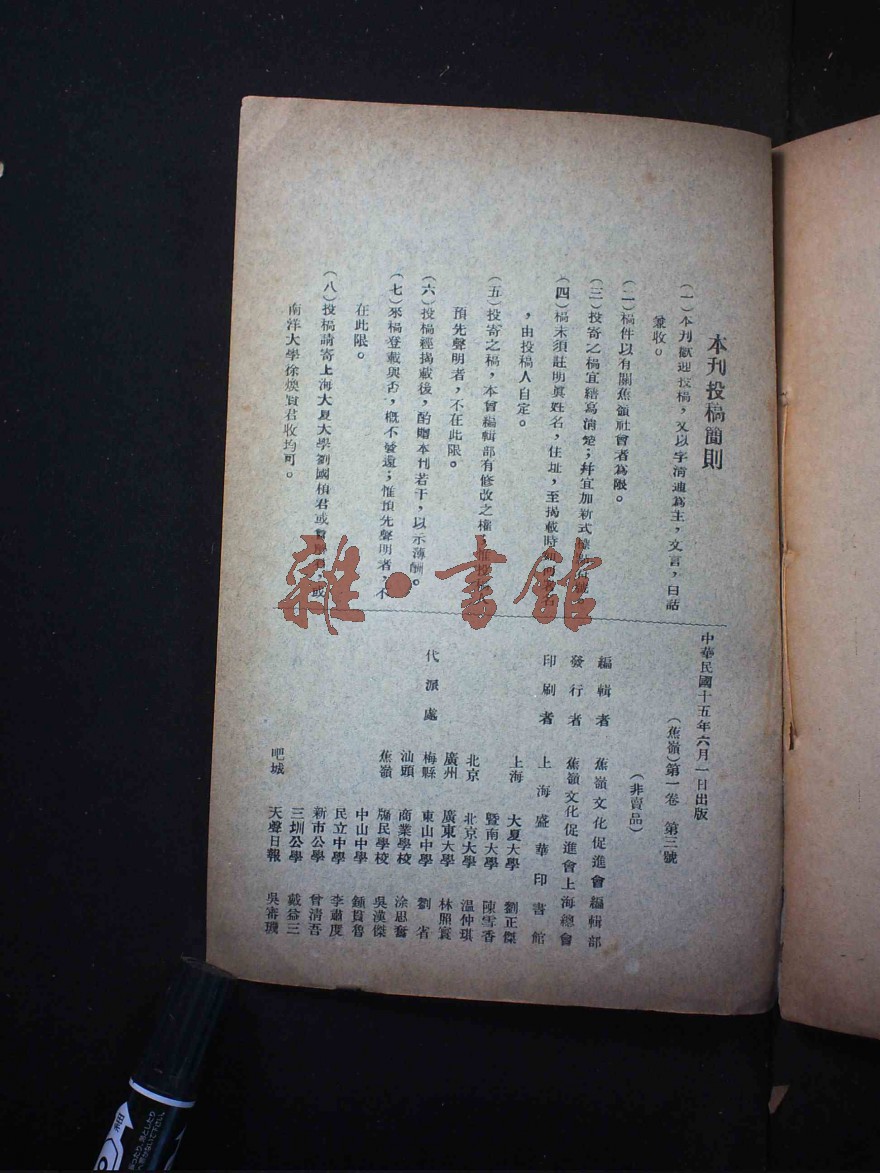 本刊投稿簡則
(一)本刊歡迎投稿，文以字清通為主，文言，白話
兼收。
(二)稿件以有關蕉嶺社會者為限。
(三)投寄之稿宜繕寫清楚；幷宜加新式標點符號。
(四)稿末須註明眞姓名，住址，至揭載時
，由投稿人自定。
(五)投寄之稿，本會編輯部有修改之權；惟投稿人
預先聲明者，不在此限。
(六)投稿經揭載後，酌贈本刊若干，以示薄酬。
(七)來稿登載與否，概不發還；惟預先聲明者，不
在此限。
(八)投稿請寄上海大夏大學劉國楨君或曾 君，或
南洋大學徐煥 君收均可。
中華民國十五年六月一日出版
(蕉嶺)第一卷 第三號
(非賣品)
編輯者 蕉嶺文化促進會編輯部
發行者 蕉嶺文化促進會上海總會
印刷者 上海盛華印書館
代派處
上海 大夏大學 劉正傑
暨南大學 陳雪香
北京 北京大學 温仲琪
廣州 廣東大學 林照寰
梅縣 東山中學 劉省
汕頭 商業學校 涂思奮
蕉嶺 牖民學校 吳漢傑
中山中學 鍾貫魯
民立中學 李肅度
新市公學 曾清吾
三圳公學 戴益三
吧城 天聲日報 吳審璣
雜·書館